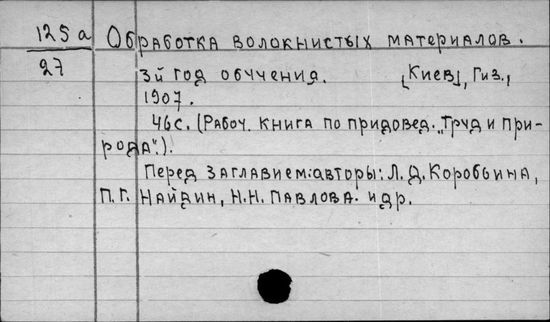 125а Обработка волокнистых материалов.
27 3й год обучения. [Киев], Гиз.,
1907.
46с. (Рабоч. книга по придовед. "Труд и При-
рода").
Перед заглавием: авторы: Л.Д. Коробьина,
П.Г. Найдин, Н.Н. Павлова. и др.